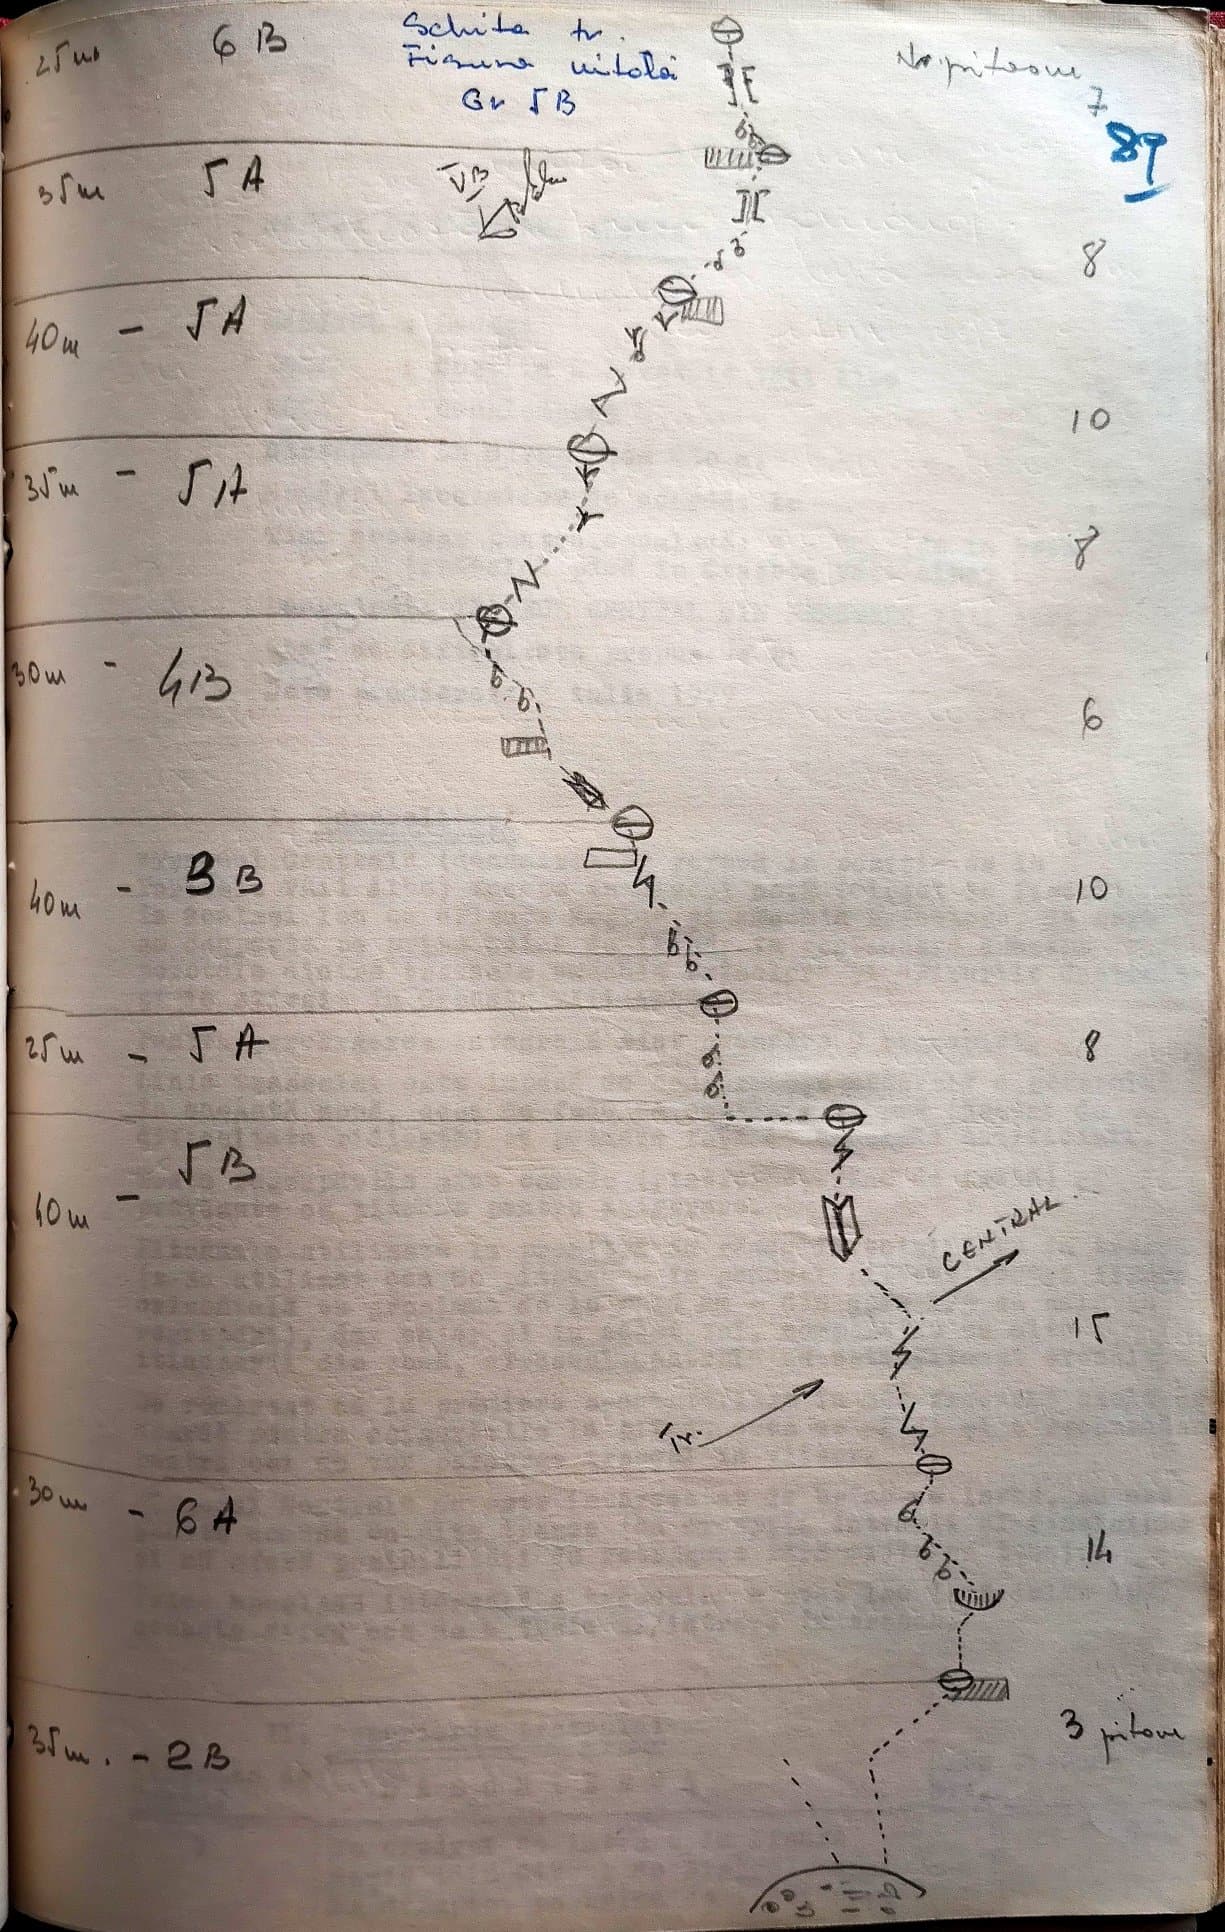 25m 6B Schita tr. Nr. pitoane
Fisura uitată 7
Gr 5B 89
35m 5A VB
8
40m - 5A
10
35m - 5A
8
30m - 4B
6
40m - 3B 10
25m - 5A 8
40m - 5B
CENTRAL
15
Tr.
30m - 6A
14
35m. - 2B 3 pitoane